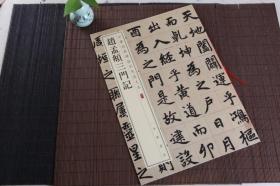 天地闔闢運乎鴻樞
而乾坤為之戶日月
出入經乎黃道而卯
酉為之門是故建設
趙孟頫三門記
之聯屬靈星之